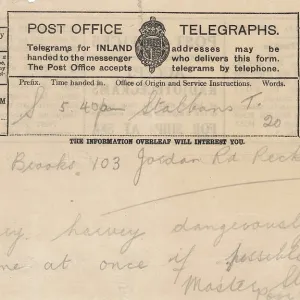 POST OFFICE TELEGRAPHS.
Telegrams for INLAND addresses may be
handed to the messenger who delivers this form.
The Post Office accepts telegrams by telephone.
Prefix. Time handed in. Office of Origin and Service Instructions. Words.
S 5.40a St albans T. 20
THE INFORMATION OVERLEAF WILL INTEREST YOU.
Brooks 103 Jordan Rd Peck
ey harvey dangerously
me at once if possible
Master